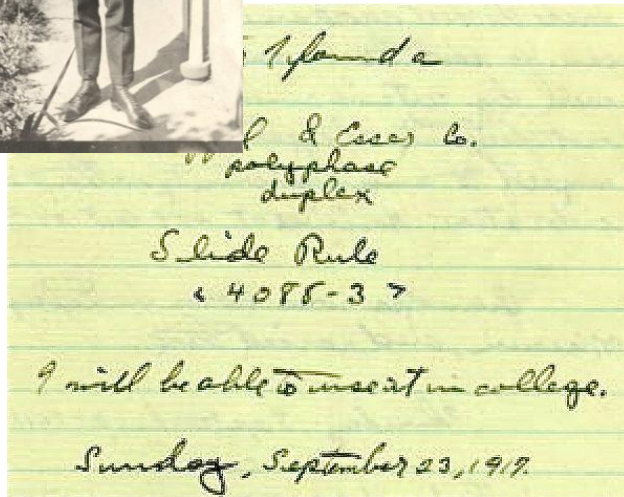 I found a
& Esser Co.
polyphase
duplex
Slide Rule
< 4088-3 >
I will be able to use it in college.
Sunday, September 23, 1917.